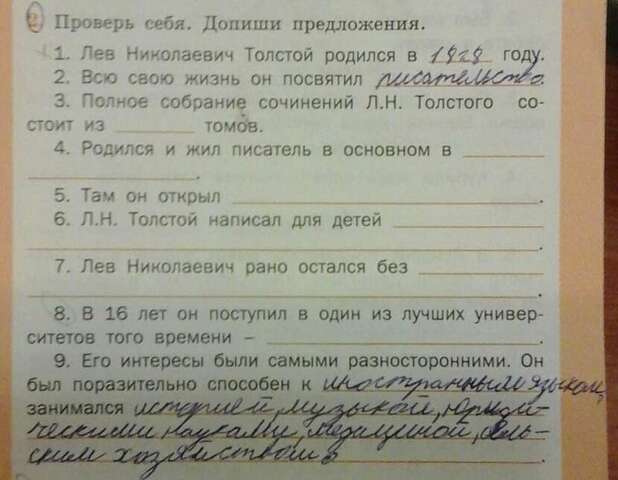 2. Проверь себя. Допиши предложения.
1. Лев Николаевич Толстой родился в 1828 году.
2. Всю свою жизнь он посвятил писательство.
3. Полное собрание сочинений Л.Н. Толстого со-
стоит из ________ томов.
4. Родился и жил писатель в основном в ________
________.
5. Там он открыл ________.
6. Л.Н. Толстой написал для детей ________
________.
7. Лев Николаевич рано остался без ________
________.
8. В 16 лет он поступил в один из лучших универ-
ситетов того времени – ________.
9. Его интересы были самыми разносторонними. Он
был поразительно способен к иностранным языкам,
занимался историей, музыкой, юриди-
ческими науками, медициной, сель-
ским хозяйством